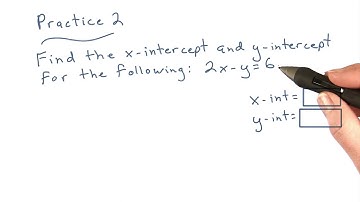 Practice 2
Find the x-intercept and y-intercept
for the following: 2x-y=6
x-int=
y-int=